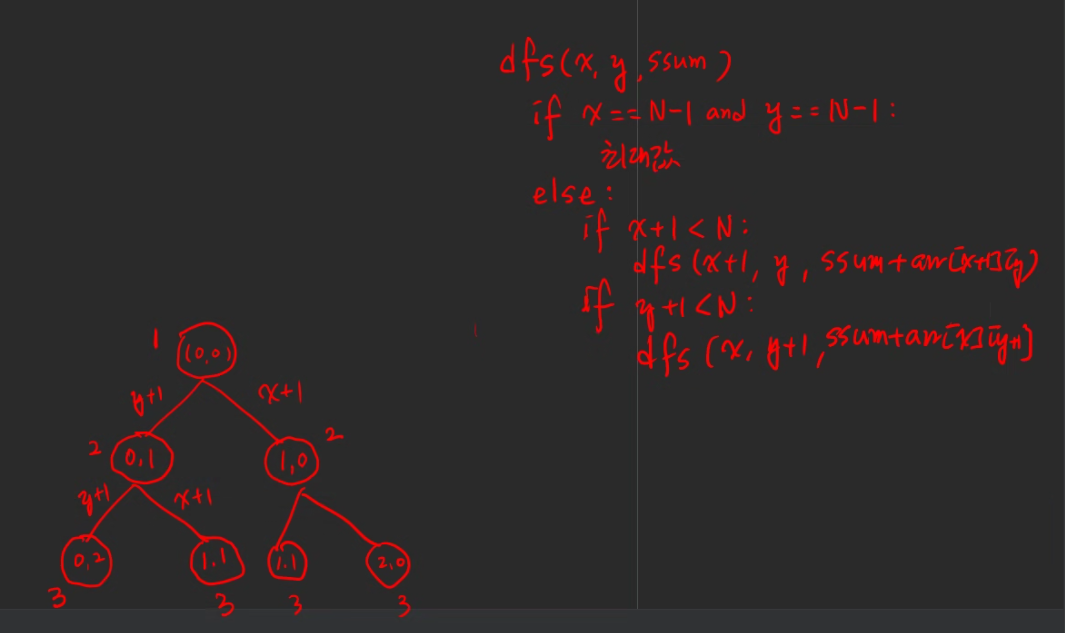 dfs(x, y, ssum)
if x == N-1 and y == N-1 :
최대값
else :
if x+1 < N :
dfs (x+1, y, ssum+arr[x+1][y)
if y+1 < N :
dfs (x, y+1, ssum+arr[x][y+1]
1
(0,0)
y+1
x+1
2
0,1
1,0
2
y+1
x+1
0,2
1.1
1.1
2,0
3
3
3
3